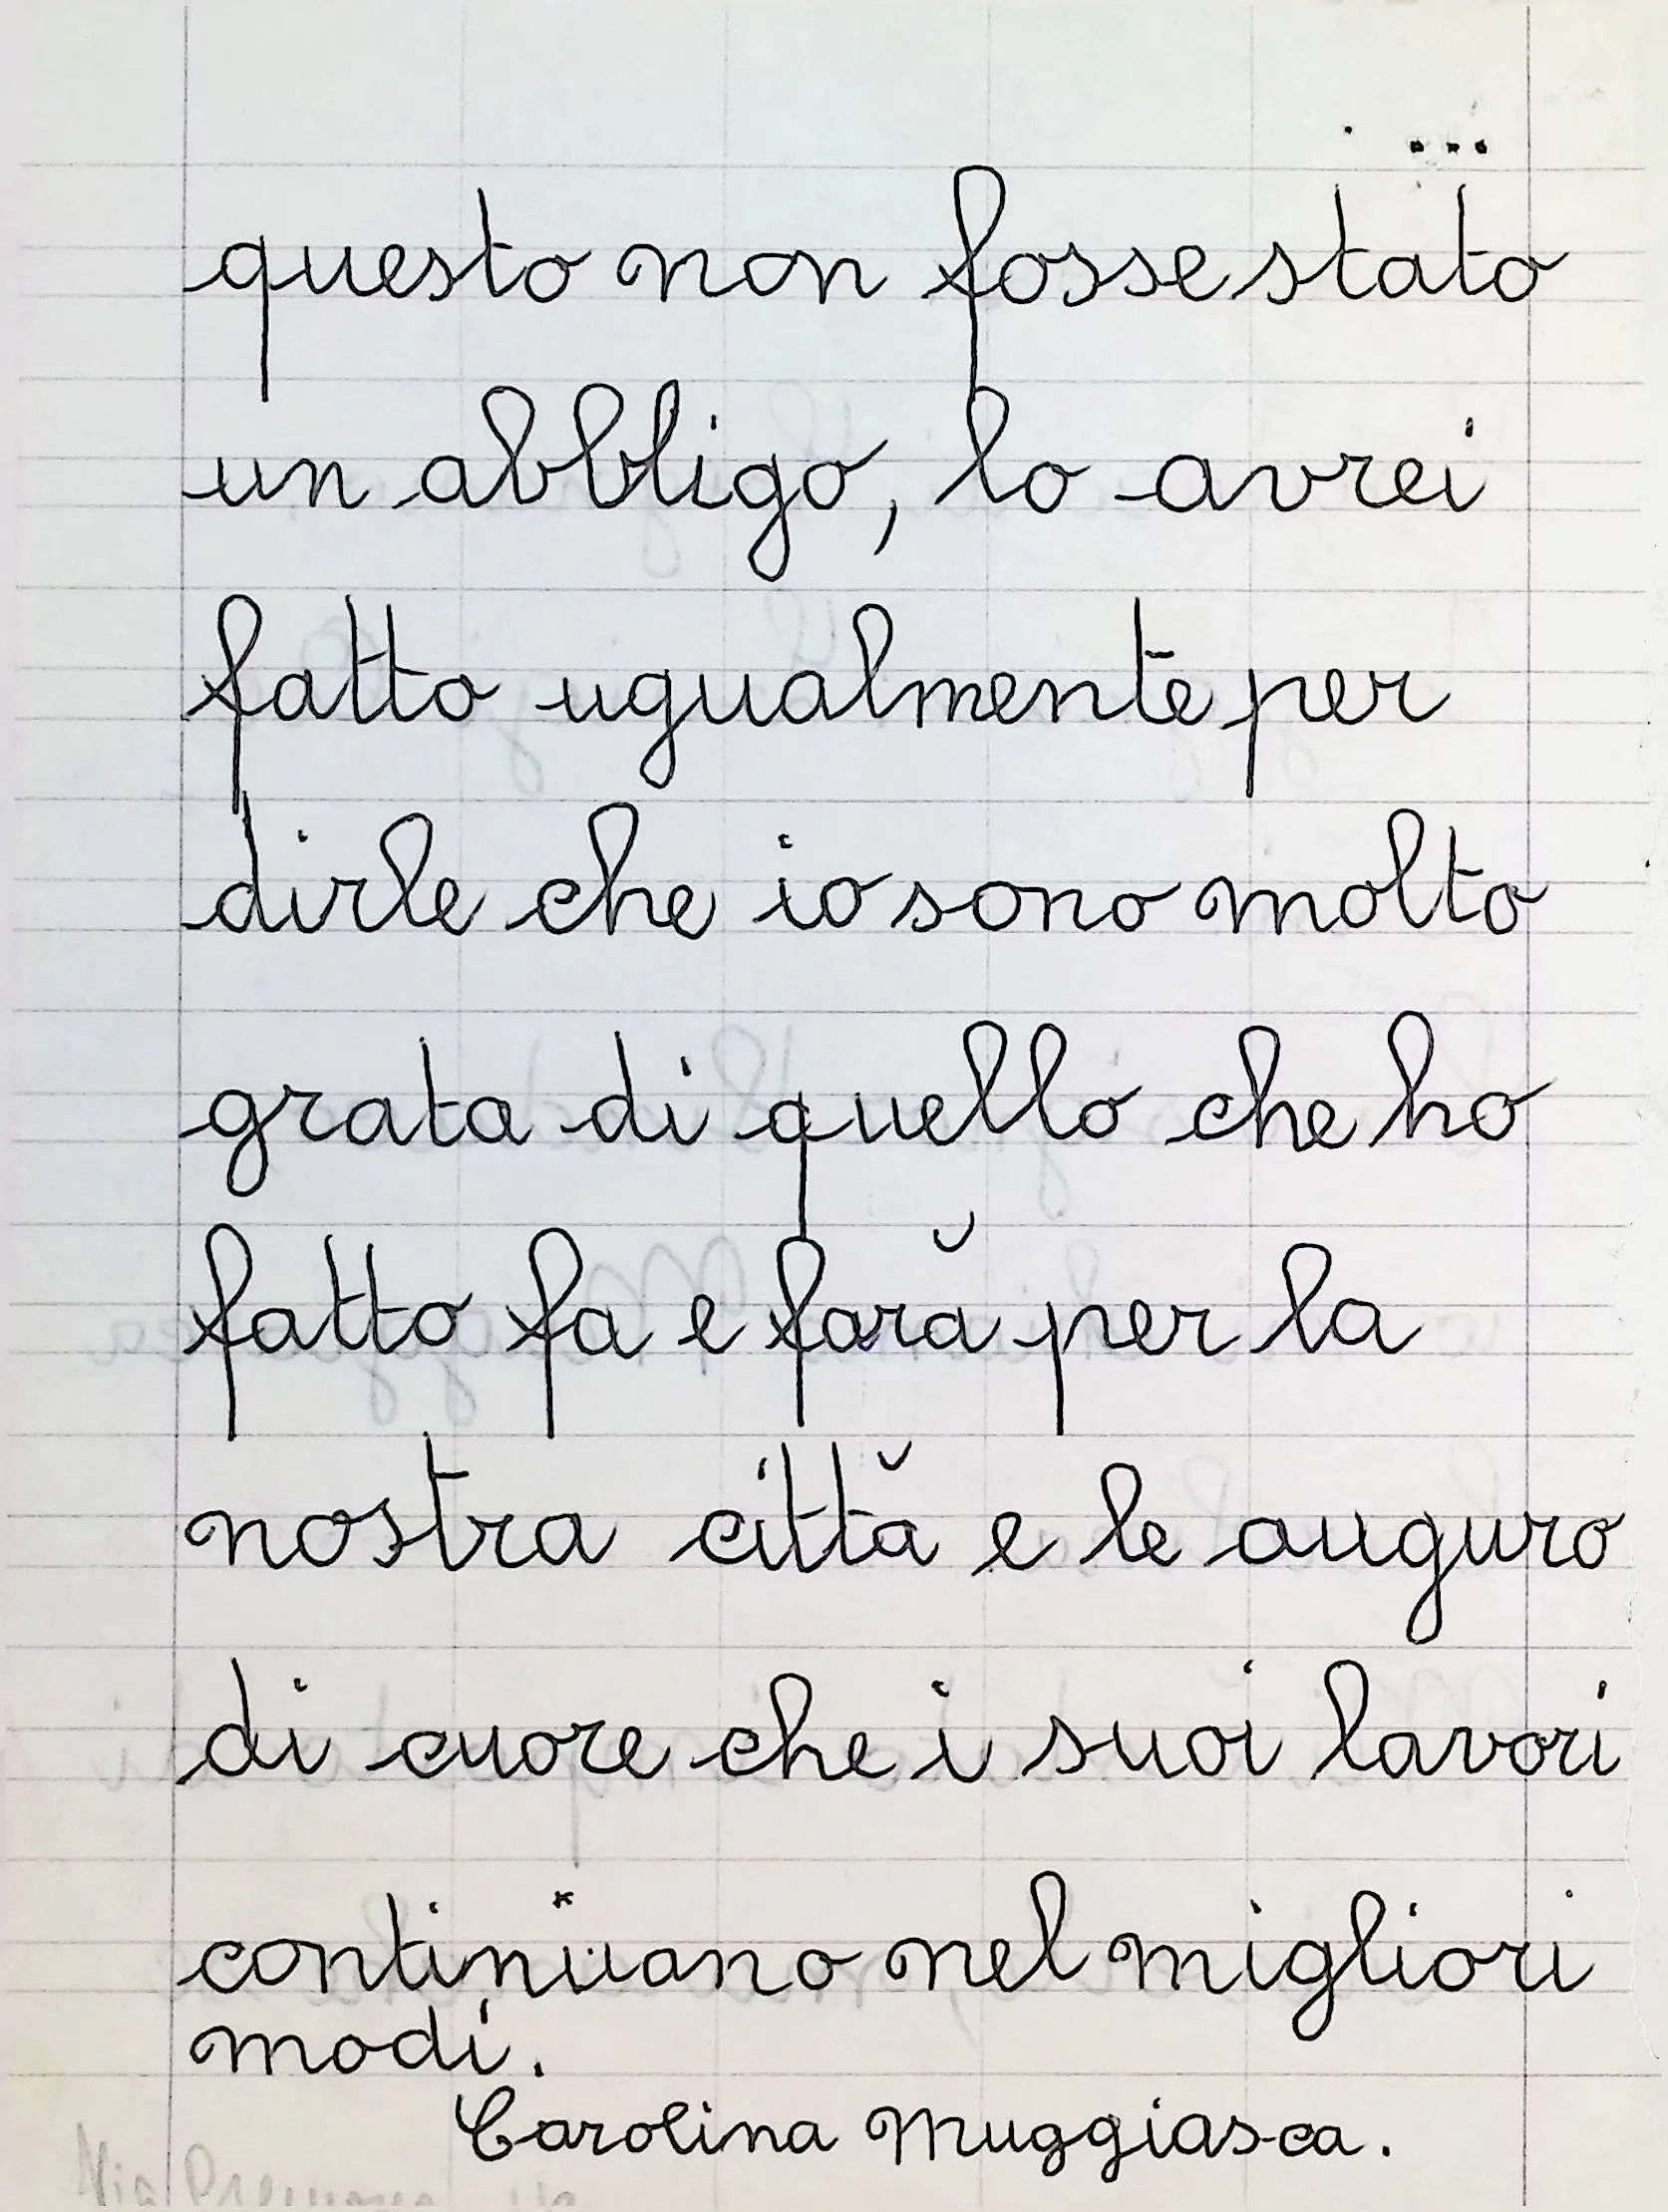 questo non fosse stato
un abbligo, lo avrei
fatto ugualmente per
dirle che io sono molto
grata di quello che ho
fatto fa e farà per la
nostra città e le auguro
di cuore che i suoi lavori
continuano nel migliori
modi.
Carolina Muggiasca.